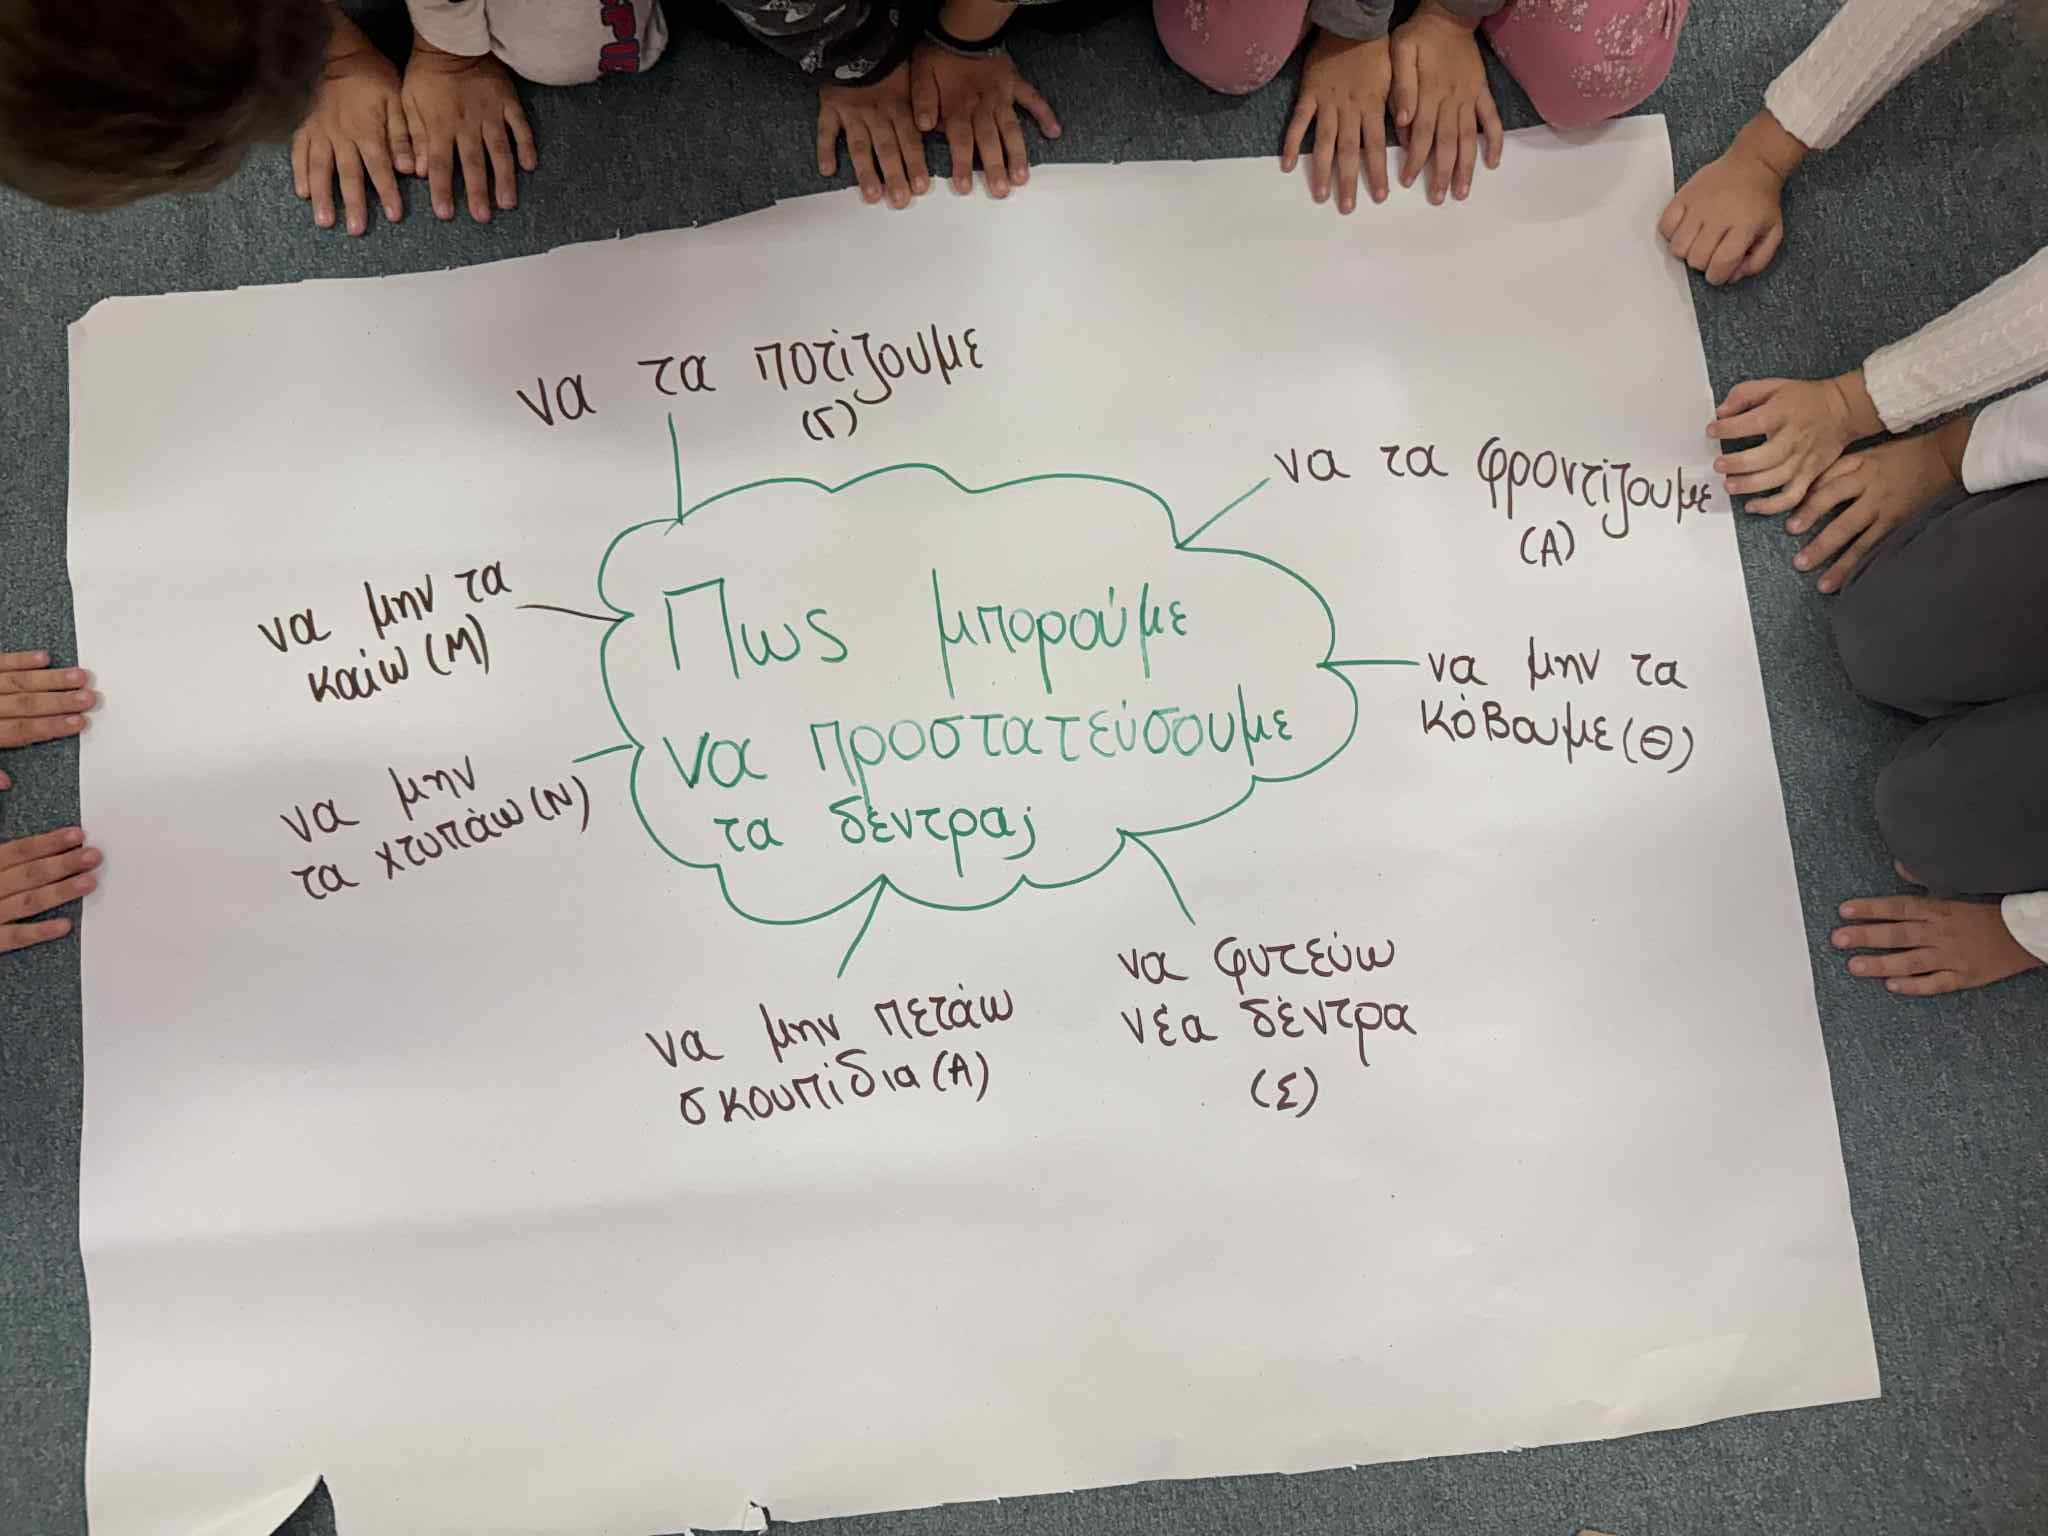 να τα ποτίζουμε
(Γ)
να τα φροντίζουμε
(Α)
να μην τα
καίω (Μ)
Πως μπορούμε
να προστατεύσουμε
τα δέντρα;
να μην τα
κόβουμε (Θ)
να μην
τα χτυπάω (Ν)
να μην πετάω
σκουπίδια (Α)
να φυτεύω
νέα δέντρα
(Σ)